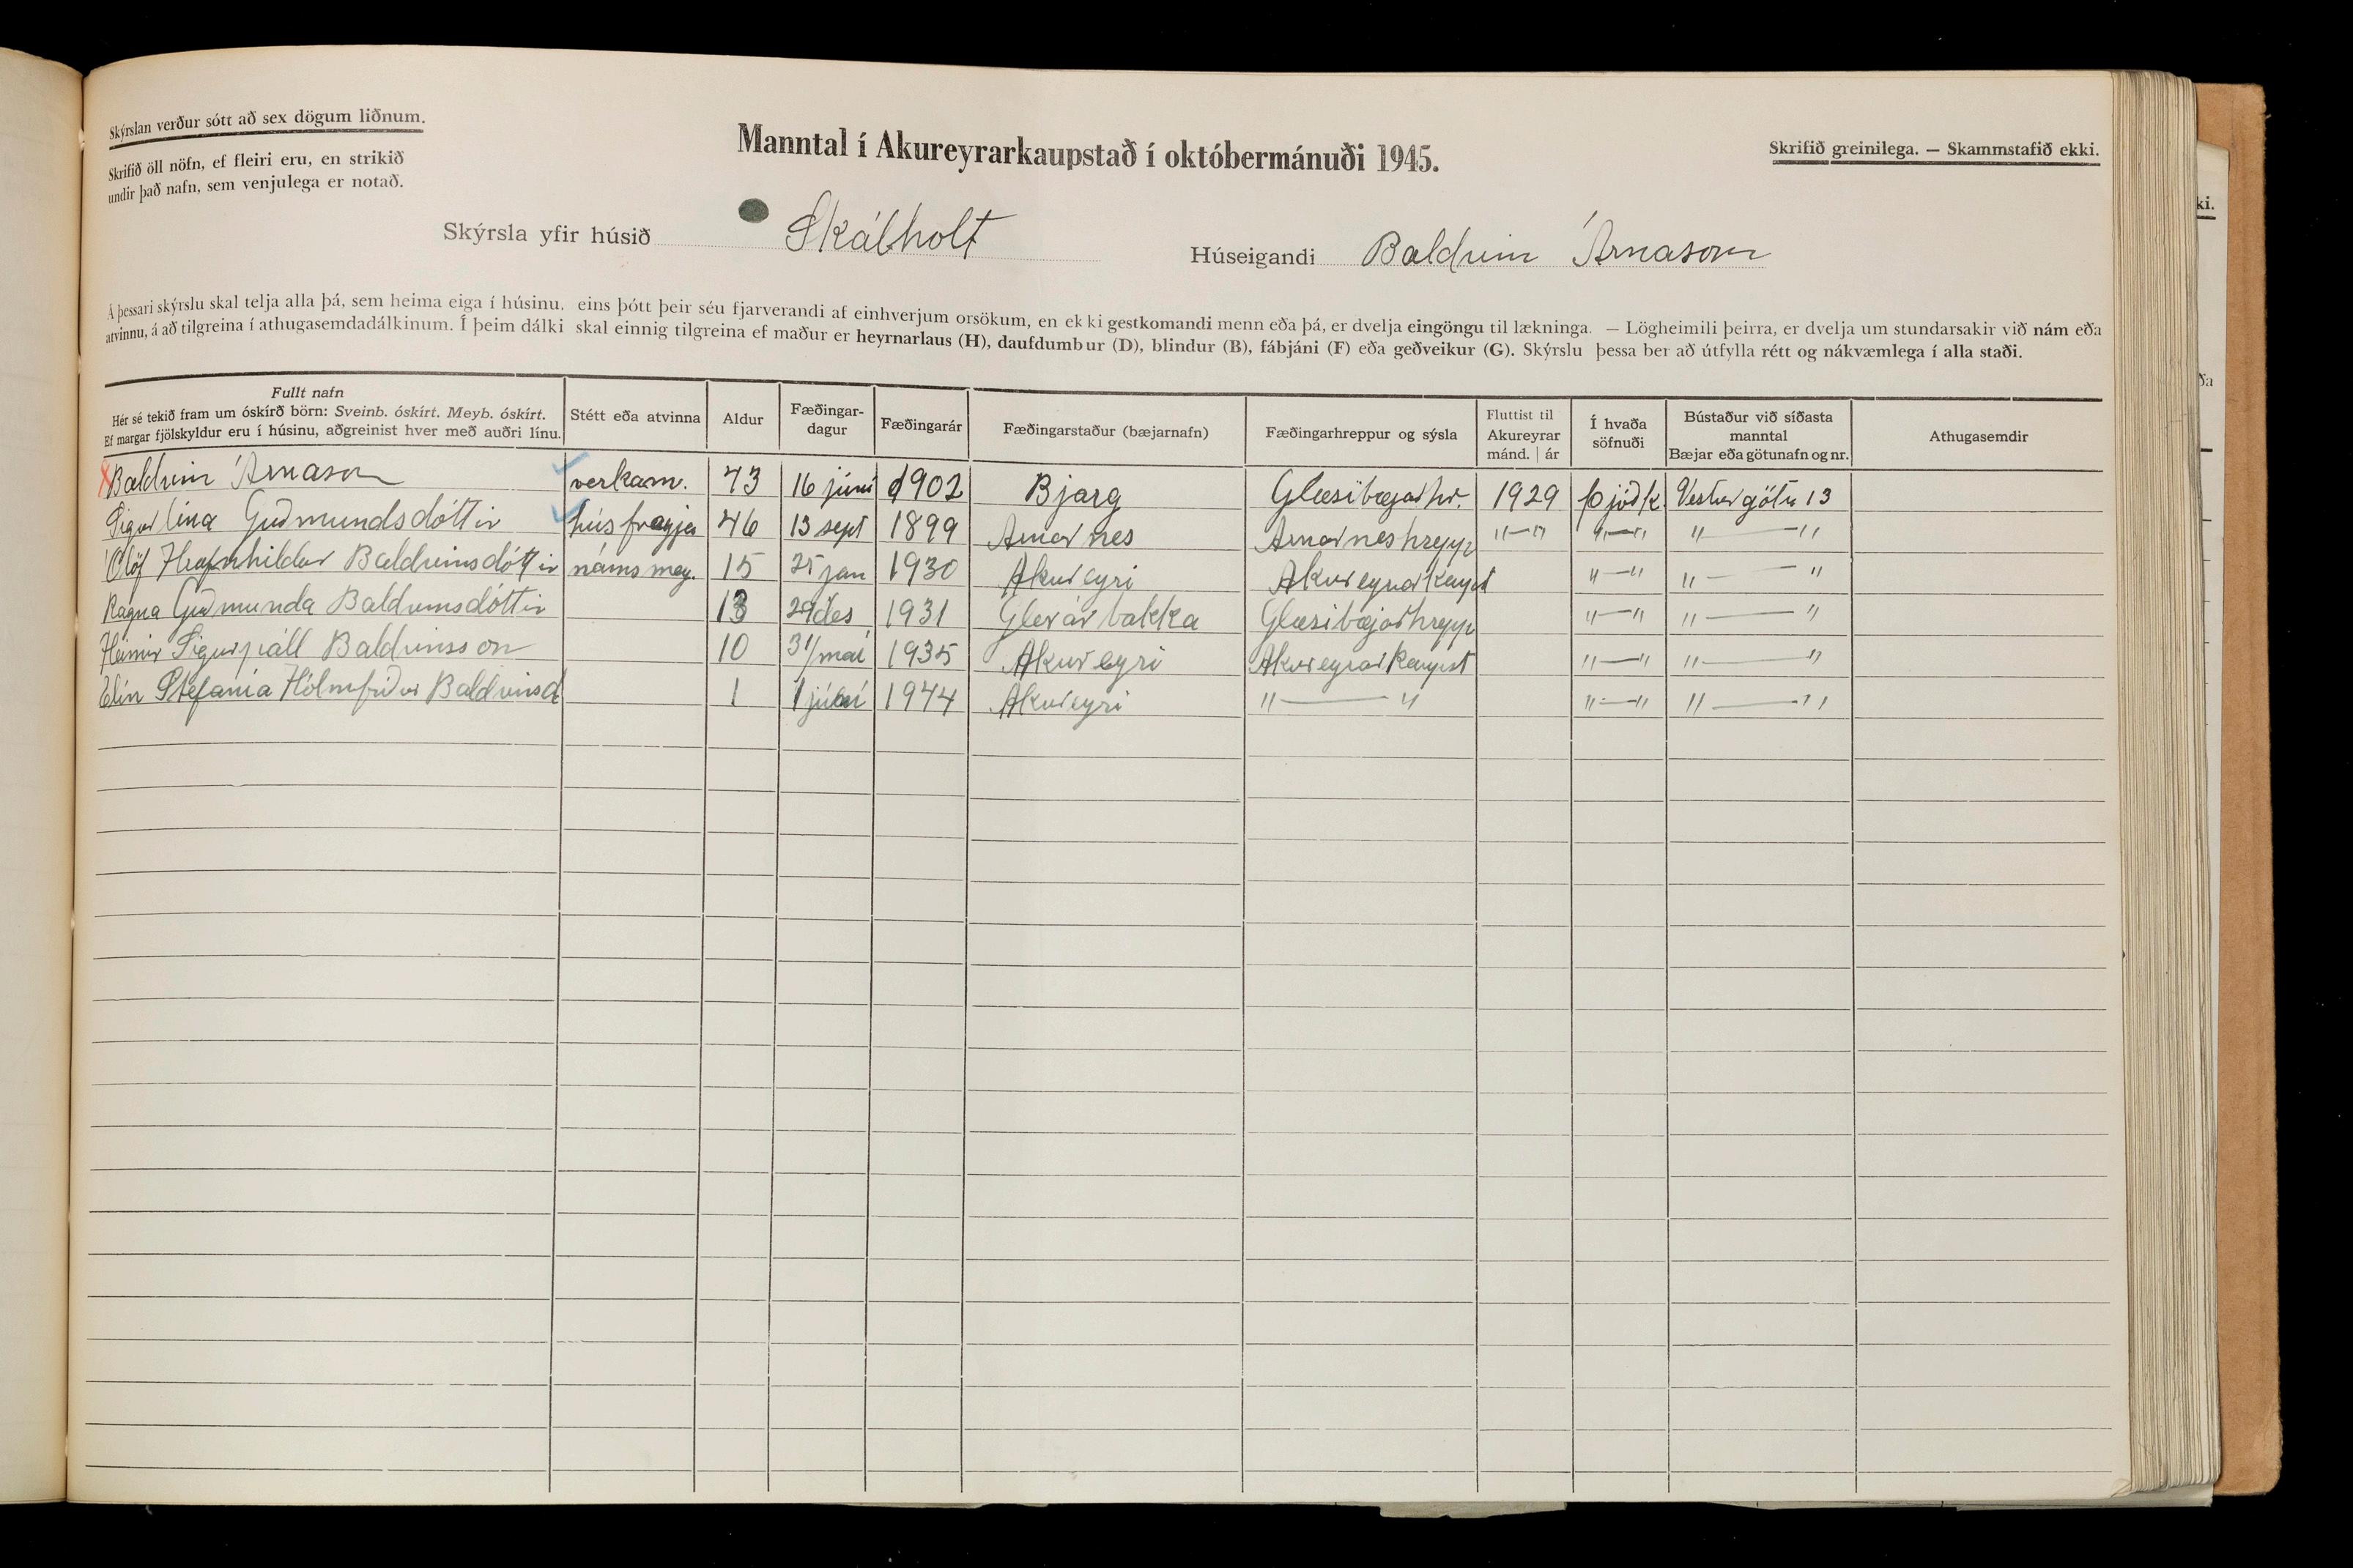 Skýrslan verður sótt að sex dögum liðnum.
Skrifið öll nöfn, ef fleiri eru, en strikið
undir það nafn, sem venjulega er notað.
Manntal í Akureyrarkaupstað í októbermánuði 1945.
Skrifið greinilega. — Skammstafið ekki.
Skýrsla yfir húsið Skálholt
Húseigandi Baldvin Árnason
Á þessari skýrslu skal telja alla þá, sem heima eiga í húsinu, eins þótt þeir séu fjarverandi af einhverjum orsökum, en ekki gestkomandi menn eða þá, er dvelja eingöngu til lækninga. — Lögheimili þeirra, er dvelja um stundarsakir við nám eða
atvinnu, á að tilgreina í athugasemdadálkinum. Í þeim dálki skal einnig tilgreina ef maður er heyrnarlaus (H), daufdumbur (D), blindur (B), fábjáni (F) eða geðveikur (G). Skýrslu þessa ber að útfylla rétt og nákvæmlega í alla staði.
Fullt nafn
Hér sé tekið fram um óskírð börn: Sveinb. óskírt. Meyb. óskírt.
Ef margar fjölskyldur eru í húsinu, aðgreinist hver með auðri línu.
Stétt eða atvinna
Aldur
Fæðingar-
dagur
Fæðingarár
Fæðingarstaður (bæjarnafn)
Fæðingarhreppur og sýsla
Fluttist til
Akureyrar
mánd. | ár
Í hvaða
söfnuði
Bústaður við síðasta
manntal
Bæjar eða götunafn og nr.
Athugasemdir
Baldvin Árnason verkam. 43 16 júní 1902 Bjarg Glæsibæjarhr. 1929 þjóðk. Vesturgötu 13
Sigurlína Guðmundsdóttir húsfreyja 46 13 sept 1899 Arnarnes Arnarneshrepp "—" "—" "—"
Ólöf Hrafnhildur Baldvinsdóttir námsmey. 15 25 jan 1930 Akureyri Akureyrarkaupst "—" "—"
Ragna Guðmunda Baldvinsdóttir 13 29 des 1931 Glerárbakka Glæsibæjarhrepp "—" "—"
Heimir Sigurpáll Baldvinsson 10 31/maí 1935 Akureyri Akureyrarkaupst "—" "—"
Elín Stefanía Hólmfríður Baldvinsd 1 1 júní 1944 Akureyri "—" "—" "—"
ki.